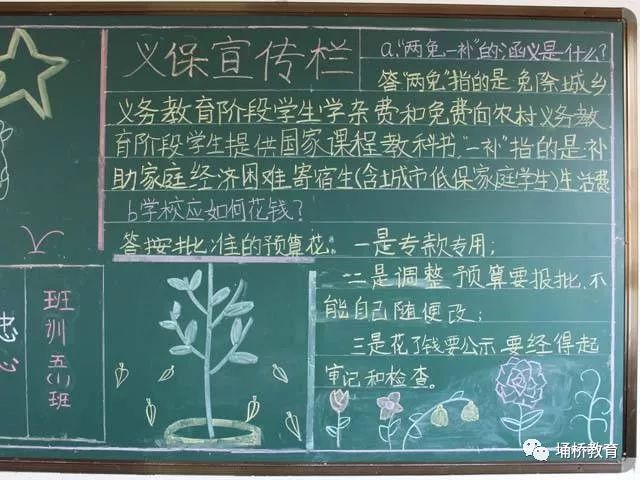 义保宣传栏
a.“两免一补”的涵义是什么?
答“两免”指的是免除城乡
义务教育阶段学生学杂费和免费向农村义务教
育阶段学生提供国家课程教科书,“一补”指的是补
助家庭经济困难寄宿生(含城市低保家庭学生)生活费
b学校应如何花钱?
答按批准的预算花。一是专款专用;
二是调整预算要报批,不
能自己随便改;
三是花了钱要公示,要经得起
审记和检查。
班训
五(1)班
忠
心
埇桥教育